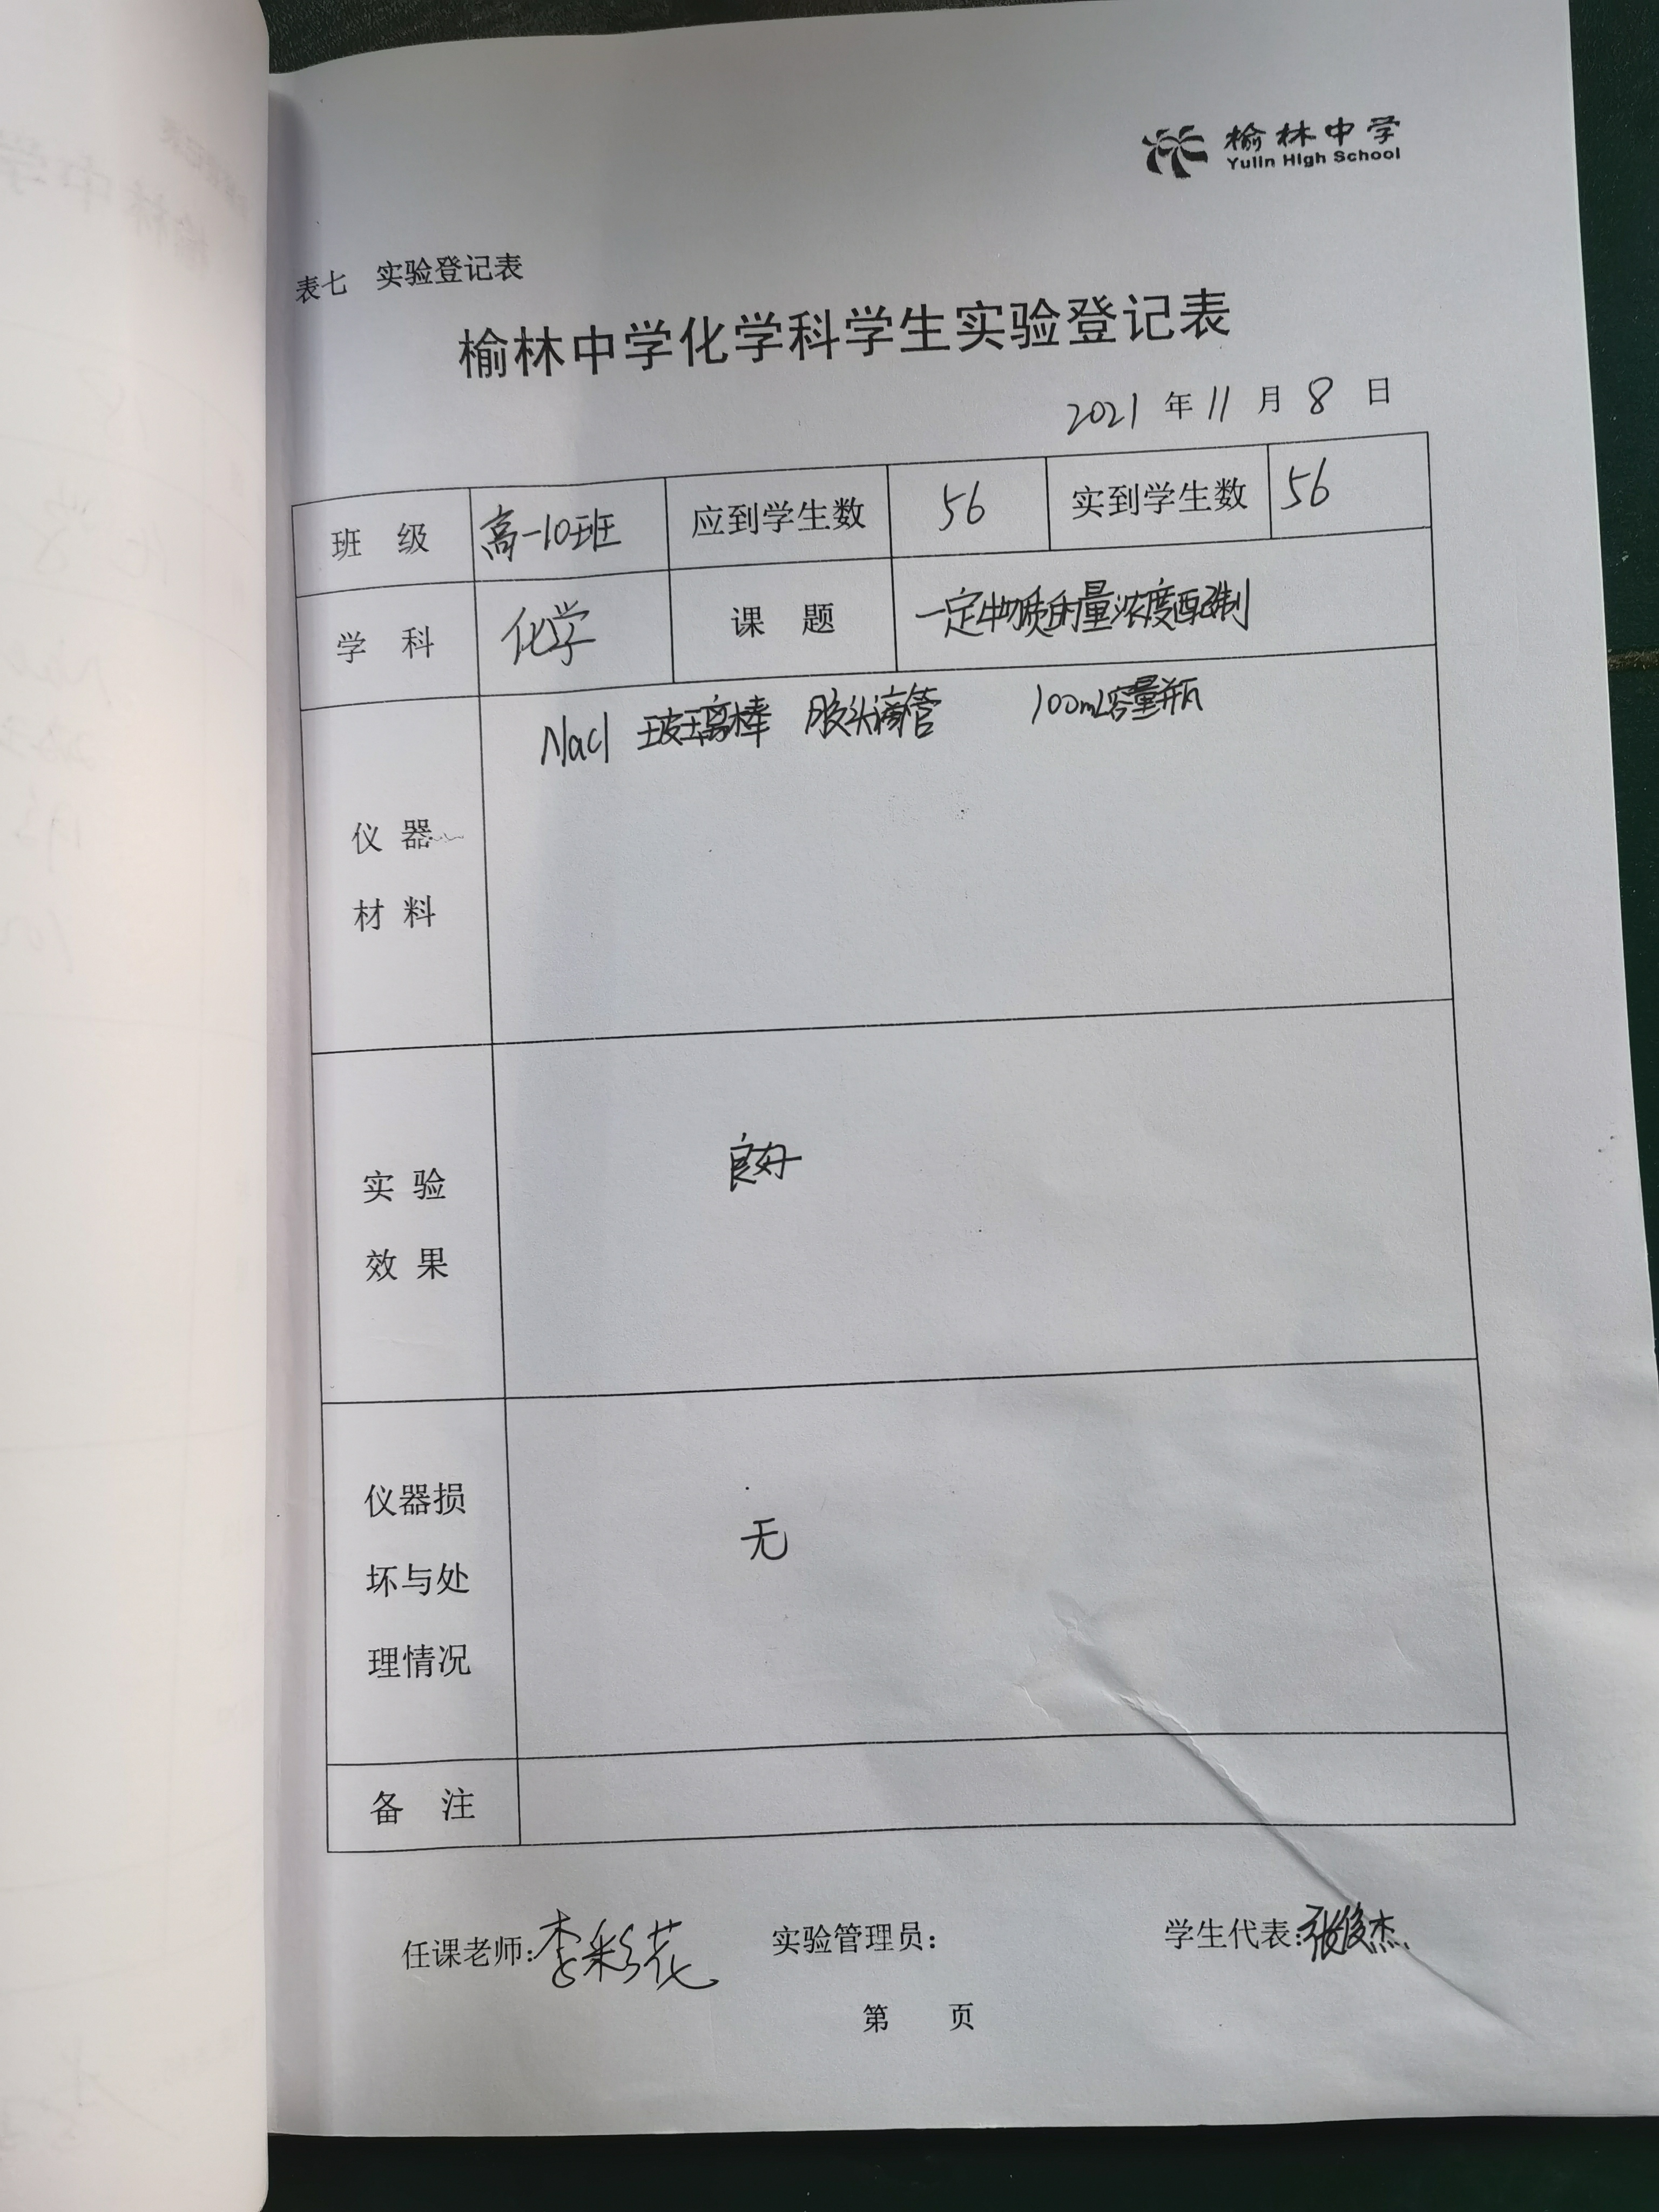 榆林中学
Yulin High School
表七 实验登记表
榆林中学化学科学生实验登记表
2021 年 11 月 8 日
班 级 高一10班 应到学生数 56 实到学生数 56
学 科 化学 课 题 一定物质的量浓度配制
NaCl 玻璃棒 胶头滴管 100mL容量瓶
仪 器
材 料
良好
实 验
效 果
仪器损
无
坏与处
理情况
备 注
任课老师:李彩花 实验管理员: 学生代表:张俊杰
第 页